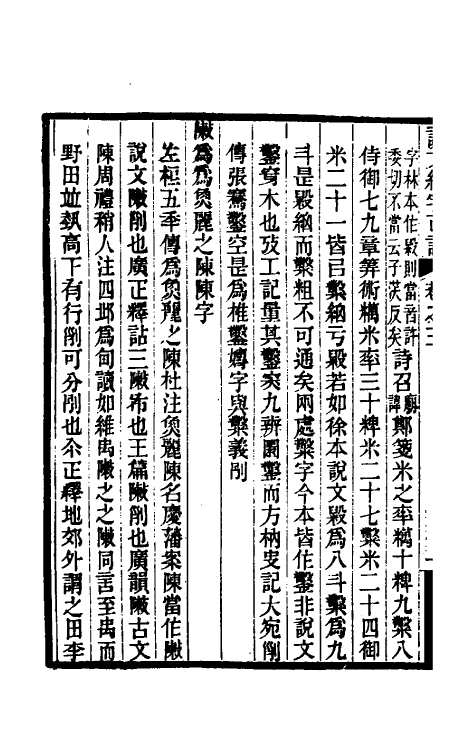 字林本作毇則當音許
委切不當云子洛反矣
詩召旻
鄭箋米之率糲十粺九鑿八
侍御七九章筭術糲米率三十粺米二十七鑿米二十四御
米二十一皆㠯鑿細亏毇若如徐本說文毇爲八斗鑿爲九
斗是毇細而鑿粗不可通矣兩處鑿字今本皆作鑿非說文
鑿穿木也攷工記量其鑿㴱九辨圜鑿而方枘史記大宛列
傳張騫鑿空是爲椎鑿專字與鑿義別
敶爲爲魚麗之陳陳字
左桓五年傳爲魚麗之陳杜注魚麗陳名慶藩案陳當作敶
說文敶列也廣正釋詁三敶布也王篇敶列也廣韻敶古文
陳周禮稍人注四邱爲甸讀如維禹敶之之敶同言至禹而
野田竝㼌高下有行列可分別也尒正釋地郊外謂之田李